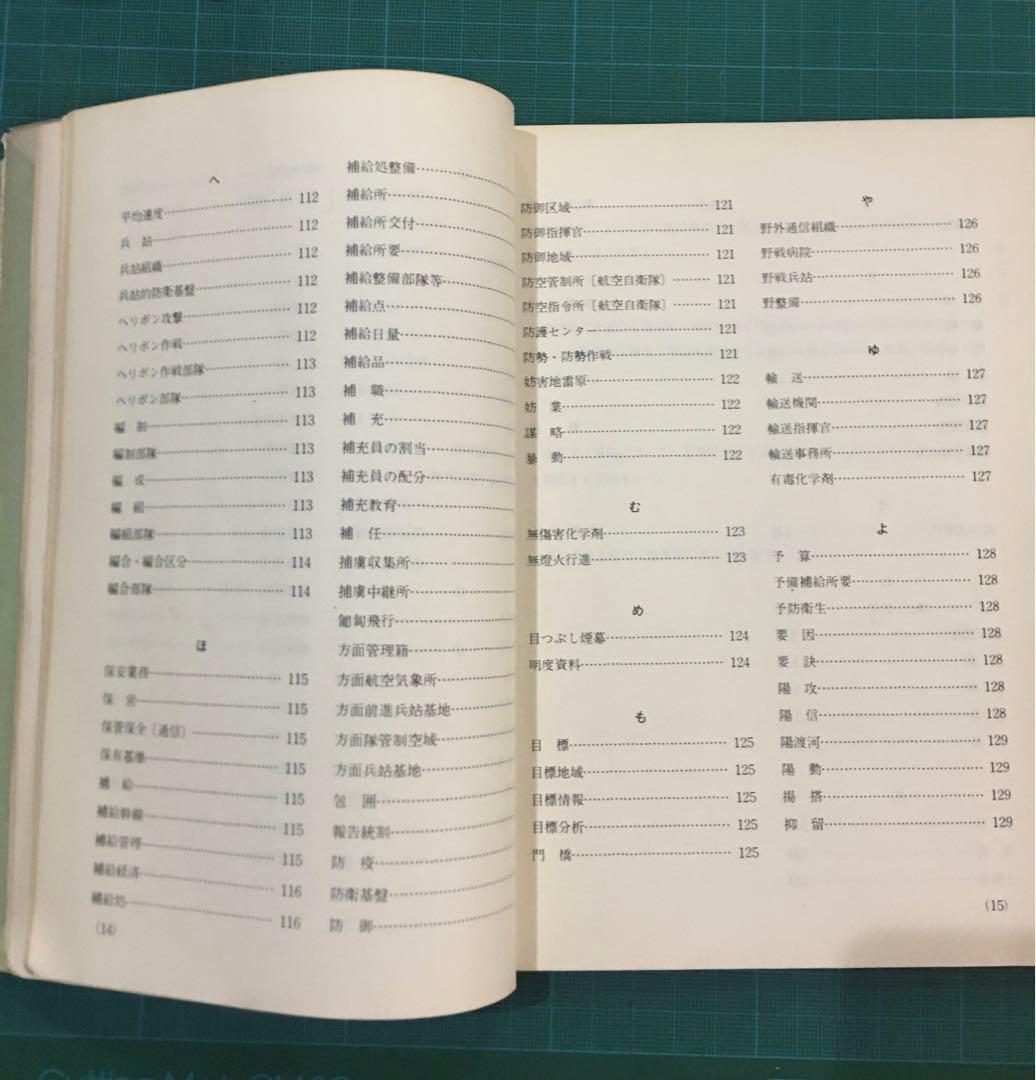 へ
平均速度 112
兵　站 112
兵站組織 112
兵站的防衛基盤 112
ヘリボン攻撃 112
ヘリボン作戦 112
ヘリボン作戦部隊 113
ヘリボン部隊 113
編　制 113
編制部隊 113
編　成 113
編　組 113
編組部隊 113
編合・編合区分 114
編合部隊 114
ほ
保安業務 115
保　営 115
保管保全〔通信〕 115
保有基準 115
補　給 115
補給幹線 115
補給管理 115
補給経済 116
補給処 116
(14)
補給処整備
補給所
補給所交付
補給所要
補給整備部隊等
補給点
補給日量
補給品
補　職
補　充
補充員の割当
補充員の配分
補充教育
補　任
捕虜収集所
捕虜中継所
匍匐飛行
方面管理籍
方面航空気象所
方面前進兵站基地
方面隊管制空域
方面兵站基地
包　囲
報告統制
防　疫
防衛基盤
防　御
防御区域 121
防御指揮官 121
防御地域 121
防空管制所〔航空自衛隊〕 121
防空指令所〔航空自衛隊〕 121
防護センター 121
防勢・防勢作戦 121
妨害地雷原 122
妨　業 122
謀　略 122
暴　動 122
む
無傷害化学剤 123
無燈火行進 123
め
目つぶし煙幕 124
明度資料 124
も
目　標 125
目標地域 125
目標情報 125
目標分析 125
門　橋 125
や
野外通信組織 126
野戦病院 126
野戦兵站 126
野整備 126
ゆ
輸　送 127
輸送機関 127
輸送指揮官 127
輸送事務所 127
有毒化学剤 127
よ
予　算 128
予備補給所要 128
予防衛生 128
要　因 128
要　訣 128
陽　攻 128
陽　信 128
陽渡河 129
陽　動 129
揚　搭 129
抑　留 129
(15)